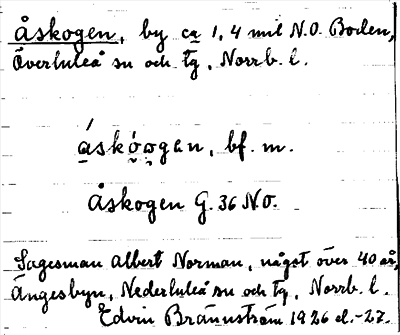 Åskogen, by ca 1,4 mil N.O. Boden,
Överluleå sn och tg, Norrb. l.
bf. m.
Åskogen G. 36 NO.
Sagesman Albert Norman, något över 40 år,
Ängesbyn, Nederluleå sn och tg, Norrb. l.
Edvin Brännström 1926 el.-27.